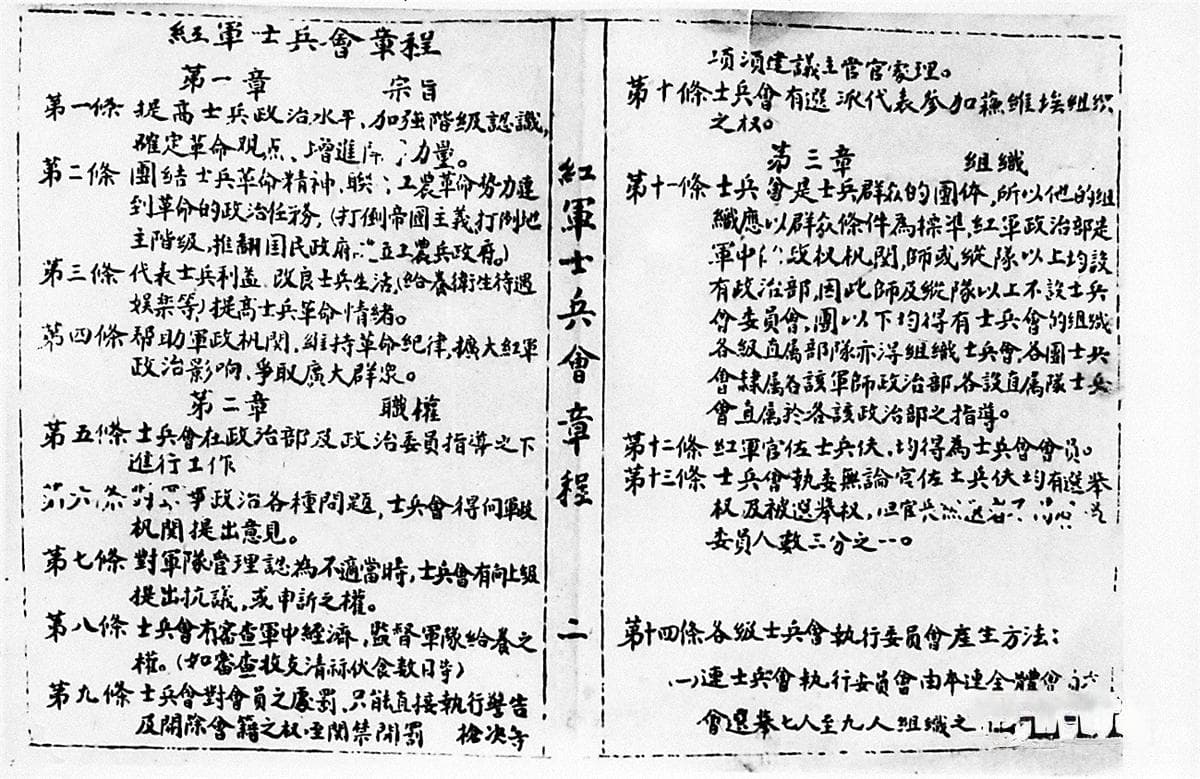 紅軍士兵會章程
第一章 宗旨
第一條 提高士兵政治水平,加強階級認識,
確定革命观点、增進 力量。
第二條 團結士兵革命精神,聯 工農革命势力達
到革命的政治任務,(打倒帝國主義,打倒地
主階级,推翻国民政府 立工農兵政府。)
第三條 代表士兵利益 改良士兵生活,(給养衛生待遇
娱楽等)提高士兵革命情緒。
第四條 帮助軍政机関,維持革命紀律,擴大紅軍
政治影响,爭取廣大群眾。
第二章 職權
第五條 士兵會在政治部及政治委員指導之下
進行工作
第六條 政治各種問題,士兵會得向軍政
机関提出意見。
第七條 對軍隊管理認為不適當時,士兵會有向上級
提出抗議,或申訴之權。
第八條 士兵會有審查軍中經濟,監督軍隊給養之
權。(如審查收支清 伙食数目等)
第九條 士兵會對會員之處罰,只能直接執行警告
及開除會籍之权 関禁開罰 槍决等
紅軍士兵會章程 二
项須建議主管官處理。
第十條 士兵會有選派代表參加蘇維埃組织
之权。
第三章 組織
第十一條 士兵會是士兵群众的團体,所以他的組
織應以群众條件為標準,紅軍政治部是
軍中 政权机関,師或縱隊以上均設
有政治部,因此師及縱隊以上不設士兵
會委員會,團以下均得有士兵會的組織
各級直属部隊亦得組織士兵會,各團士兵
會隸属各該軍師政治部,各設直属隊士兵
會直属於各該政治部之指導。
第十二條 紅軍官佐士兵伕,均得為士兵會會员。
第十三條 士兵會執委無論官佐士兵伕均有選举
权及被選举权,但官長
委员人数三分之一。
第十四條 各級士兵會執行委員會產生方法:
(一)連士兵會執行委員會由 連全體會
會選举七人至九人組織之